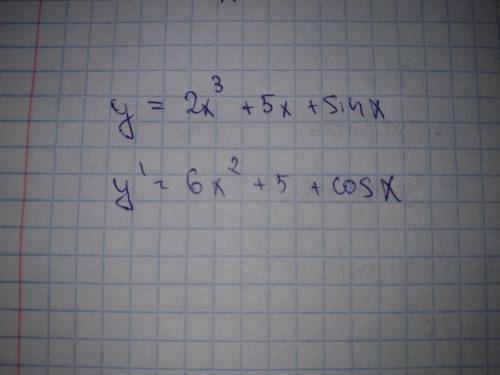 y = 2x³ + 5x + sin x
y' = 6x² + 5 + cos x